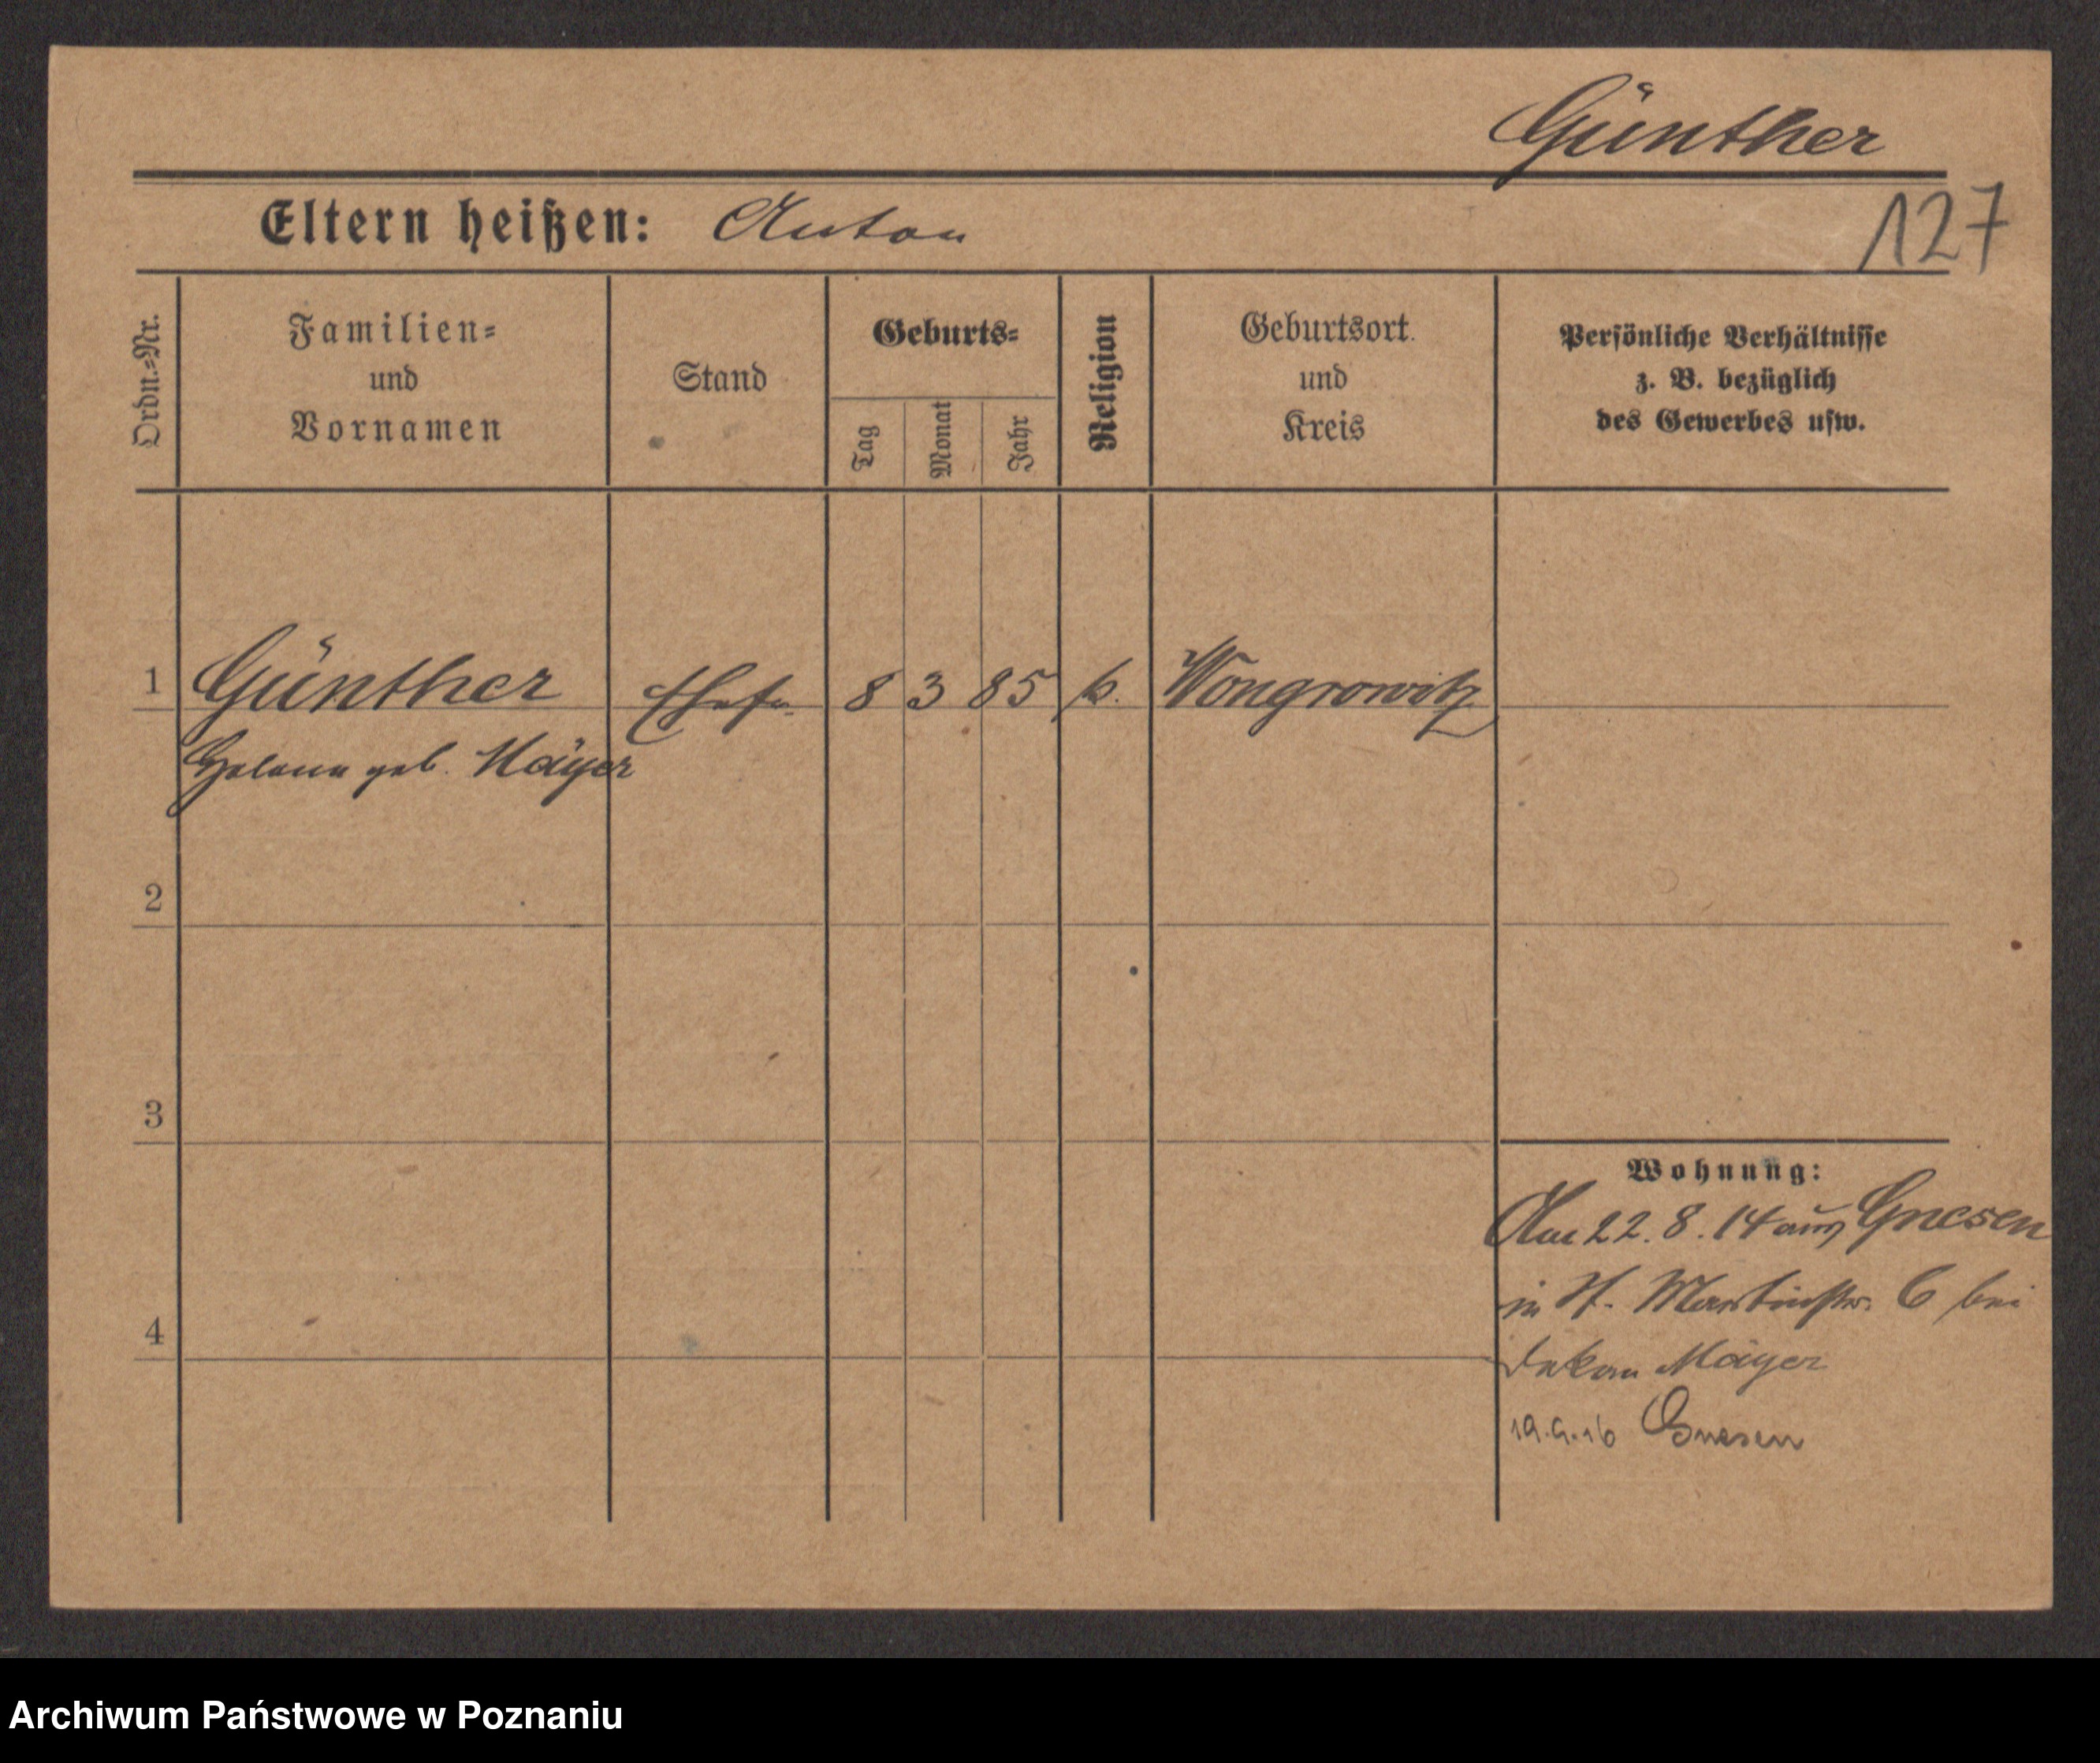 Günther
127
Eltern heißen: Anton
Ordn.=Nr.
Familien=
und
Vornamen
Stand
Geburts=
Tag
Monat
Jahr
Religion
Geburtsort
und
Kreis
Persönliche Verhältnisse
z. B. bezüglich
des Gewerbes usw.
1 Günther Ehefr. 8 3 85 k. Wongrowitz
Helene geb. Mäyer
2
3
4
Wohnung:
Am 22.8.14 aus Gnesen
in St. Martinstr. 6 bei
Mäyer
19.9.16 Gnesen
Archiwum Państwowe w Poznaniu